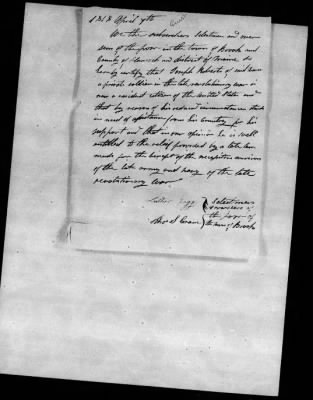 1818 April 7th
We the subscribers Selectmen and over-
seers of the poor in the town of Brooks and
County of Hancock and district of Maine do
hereby certify that Joseph Roberts of said
a private soldier in the late revolutionary war is
now a resident citizen of the United States and
that by reason of his reduced circumstances stands
in need of assistance from his Country for his
support and that in our opinion he is well
entitled to the relief provided by a late law
made for the benefit of the
of the late army and navy of the late
revolutionary war
Selectmen
overseers of
the poor of
the town of Brooks